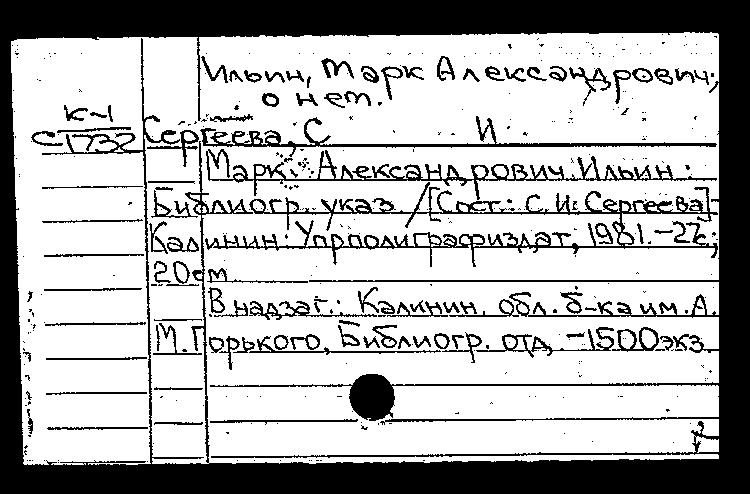 Ильин, Марк Александрович;
о нем.
К-1
С-1732
Сергеева, С И
Марк Александрович Ильин:
Библиогр. указ. / [Сост.: С. И. Сергеева] -
Калинин: Упрполиграфиздат, 1981. - 22с.;
20см
В надзаг.: Калинин. обл. б-ка им. А.
М. Горького, Библиогр. отд. - 1500экз.